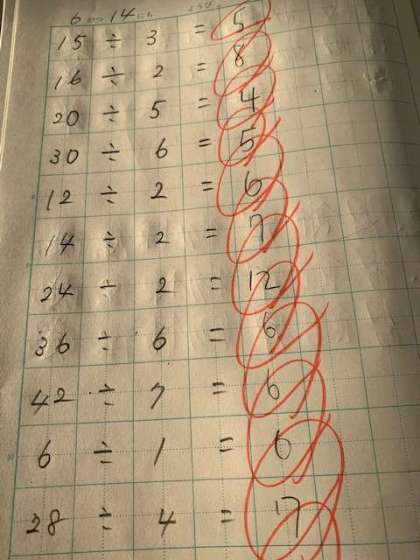 6 14
15 ÷ 3 = 5
16 ÷ 2 = 8
20 ÷ 5 = 4
30 ÷ 6 = 5
12 ÷ 2 = 6
14 ÷ 2 = 7
24 ÷ 2 = 12
36 ÷ 6 = 6
42 ÷ 7 = 6
6 ÷ 1 = 6
28 ÷ 4 = 7